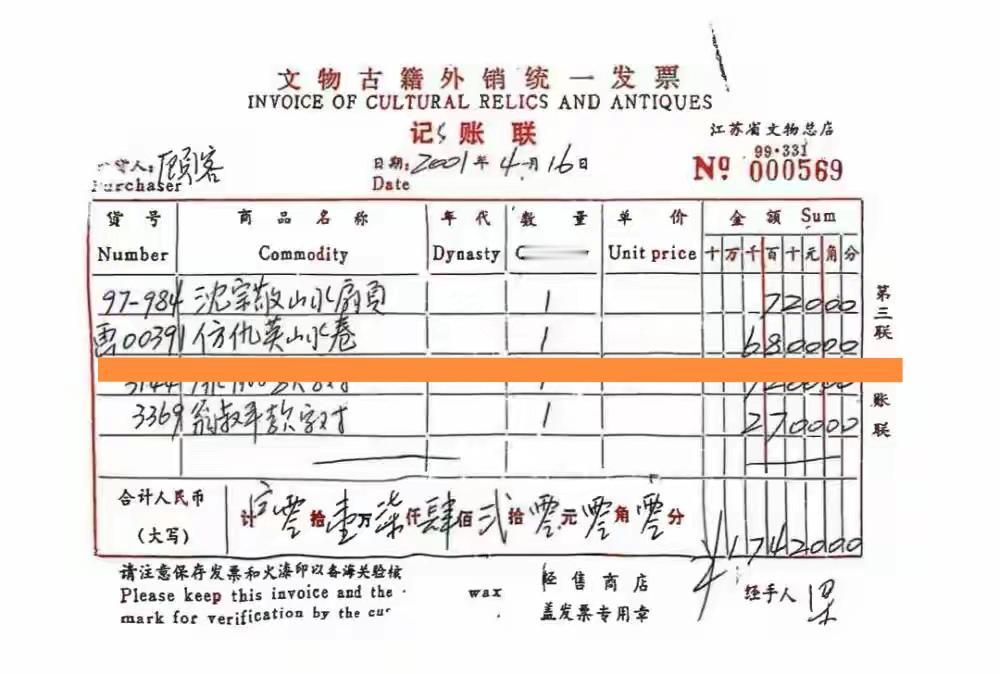 文物古籍外销统一发票
INVOICE OF CULTURAL RELICS AND ANTIQUES
记账联
江苏省文物总店
99·331
Nº 000569
人: 顾客
日期: 2001年4月16日
Purchaser
Date
货号 商品名称 年代 数量 单价 金额 Sum
Number Commodity Dynasty Unit price 十万千百十元角分
97-984 沈宗敬山水扇页 1 72000
00391 仿仇英山水卷 1 680000
3369 翁叔平款字对 1 270000
第三联
账联
合计人民币
(大写)
计 零拾壹万柒仟肆佰贰拾零元零角零分
¥1742000
请注意保存发票和火漆印以备海关验核
Please keep this invoice and the wax
mark for verification by the
经售商店
盖发票专用章
经手人